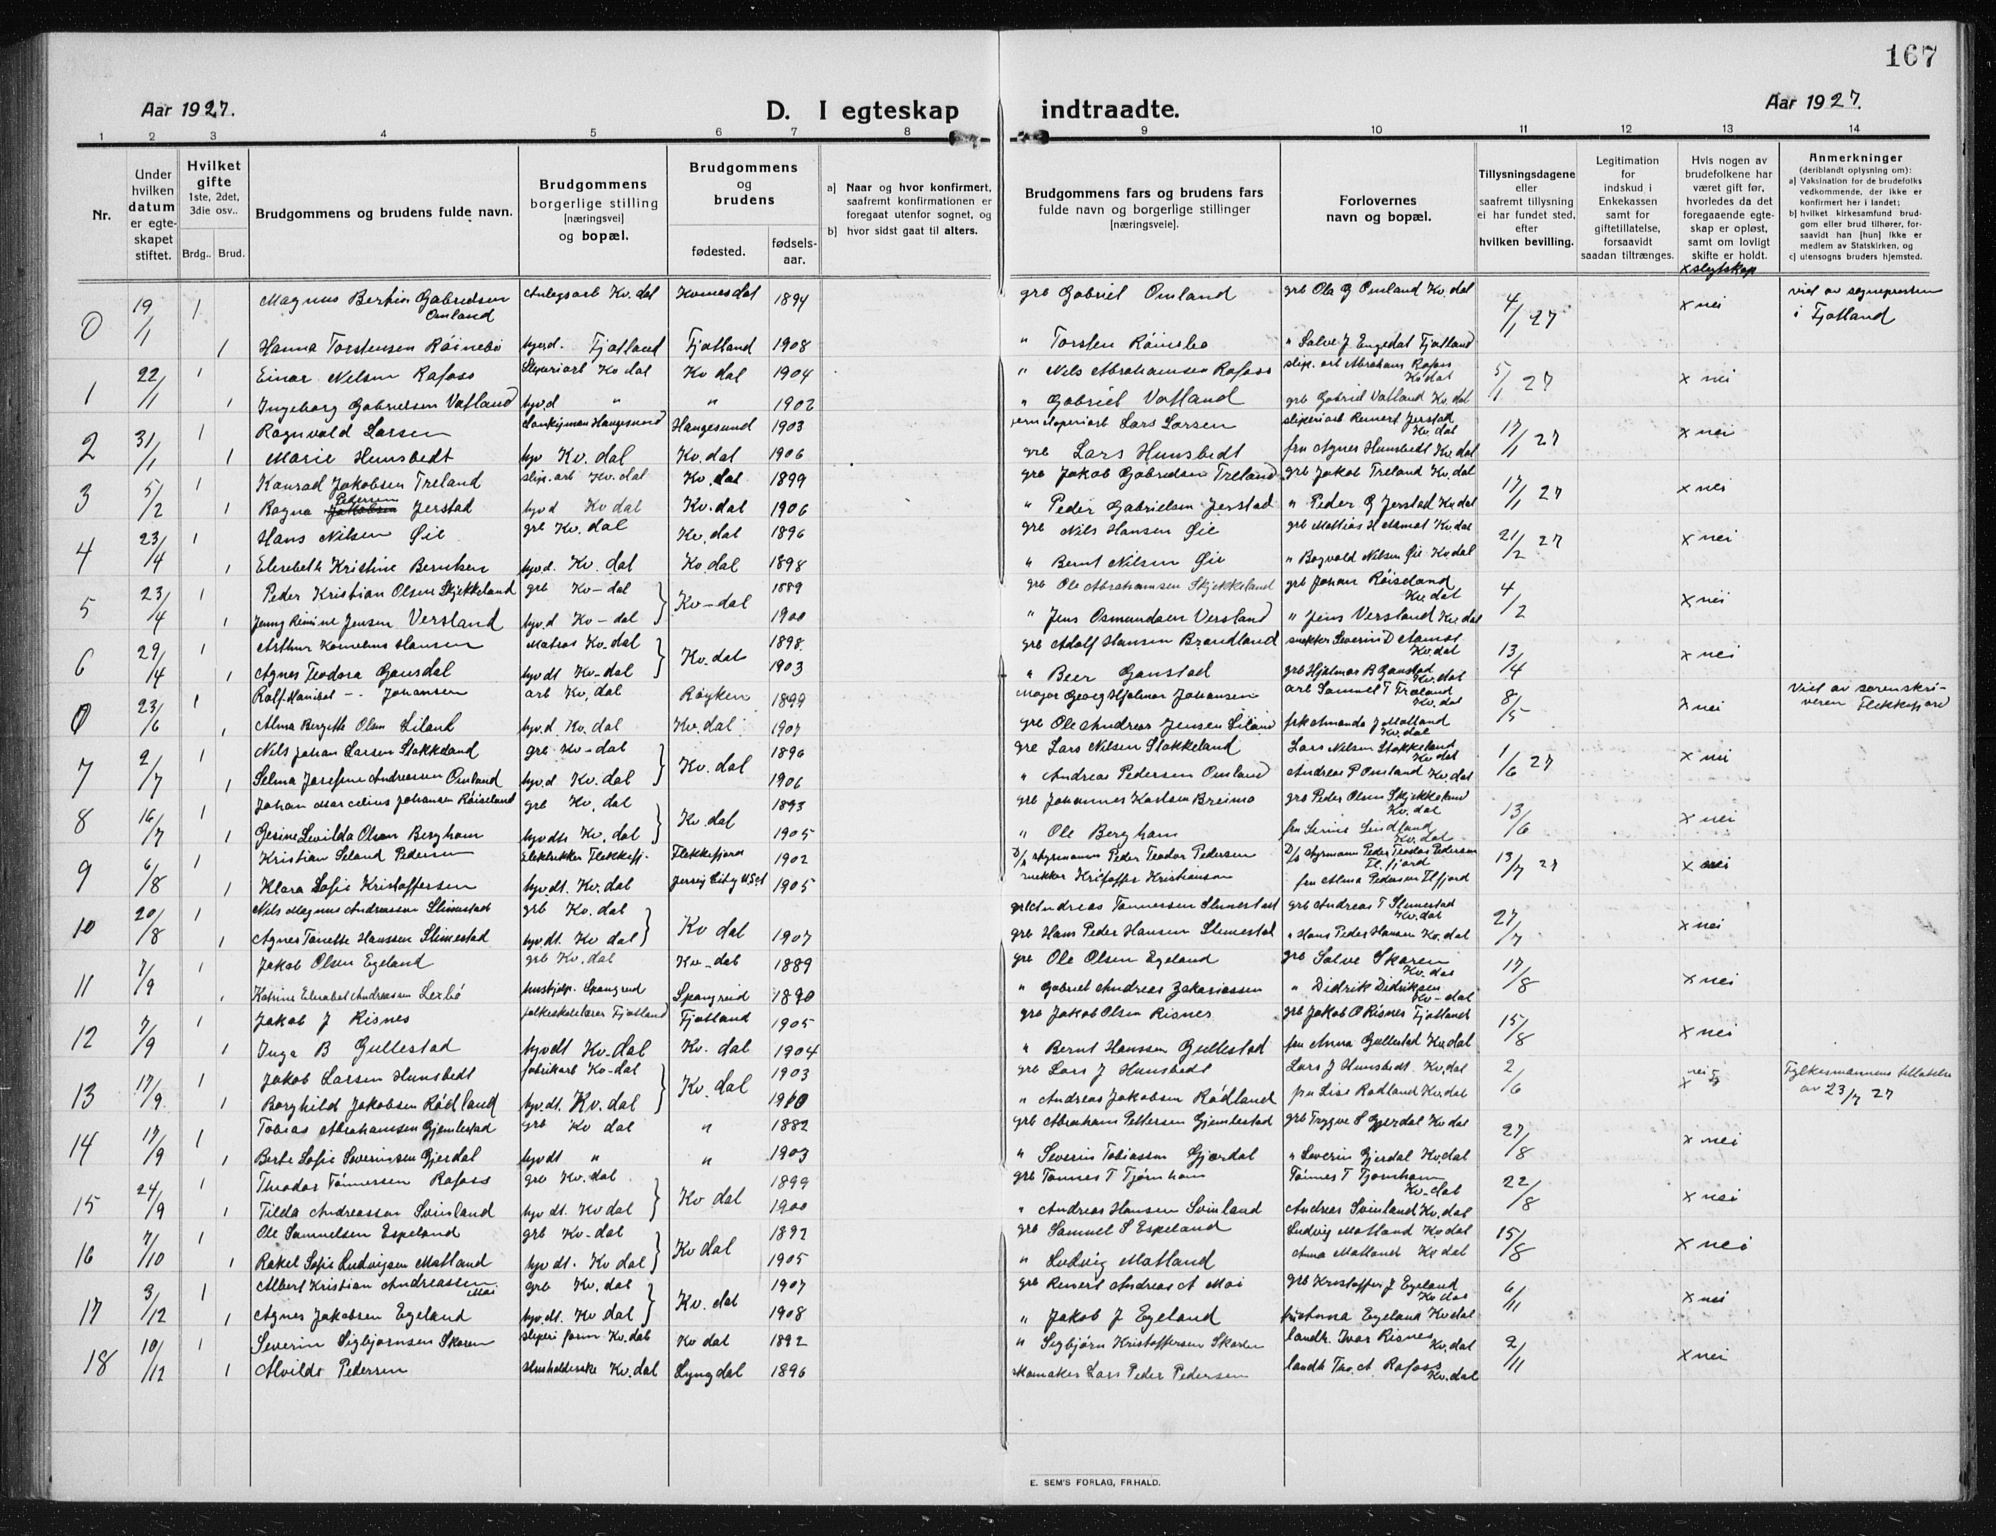 167
Aar 1927. D. I egteskap indtraadte. Aar 1927.
1 2 3 4 5 6 7 8 9 10 11 12 13 14
Nr.
Under hvilken datum er egteskapet stiftet.
Hvilket gifte 1ste, 2det, 3die osv..
Brdg.. Brud.
Brudgommens og brudens fulde navn.
Brudgommens borgerlige stilling [næringsvei] og bopæl.
Brudgommens og brudens
fødested. fødselsaar.
a] Naar og hvor konfirmert, saafremt konfirmationen er foregaat utenfor sognet, og
b] hvor sidst gaat til alters.
Brudgommens fars og brudens fars fulde navn og borgerlige stillinger [næringsvei].
Forlovernes navn og bopæl.
Tillysningsdagene eller saafremt tillysning ei har fundet sted, efter hvilken bevilling.
Legitimation for indskud i Enkekassen samt for giftetillatelse, forsaavidt saadan tiltrænges.
Hvis nogen av brudefolkene har været gift før, hvorledes da det foregaaende egteskap er opløst, samt om lovligt skifte er holdt.
x slegtskap
Anmerkninger (deriblandt oplysning om): a) Vaksination for de brudefolks vedkommende, der ikke er konfirmert her i landet; b) hvilket kirkesamfund brudgom eller brud tilhører, forsaavidt han [hun] ikke er medlem av Statskirken, og c) utensogns bruders hjemsted.
0 19/1 1 Magnus Bertin Gabrielsen Omland Anlegsarb Kv.dal Kvinesdal 1894 grb Gabriel Omland grb Ola G Omland Kv.dal 4/1 27 x nei viet av sognepresten i Fjotland
1 Hanna Torstensen Røinebø hyv.d. Fjotland Fjotland 1908 " Torsten Røinebø " Salve J. Engedal Fjotland
1 22/1 1 Einar Nilsen Rafoss Sliperiarb Kv dal Kv dal 1904 " Nils Abrahamsen Rafoss slip. arb Abrahams Rafoss Kv dal 5/1 27 x nei
1 Ingeborg Gabrielsen Vatland hyv.d " " 1902 " Gabriel Vatland grb Gabriel Vatland Kv. dal
2 31/1 1 Ragnvald Larsen Haugesund Haugesund 1903 Lars Larsen sliperiarb Reinert Jerstad Kv. dal 17/1 27 x nei
1 Marie Hunsbedt hyv Kv. dal Kv. dal 1906 grb Lars Hunsbedt fru Agnes Hunsbedt Kv dal
3 5/2 1 Konrad Jakobsen Treland slip. arb Kv. dal Kv. dal 1899 grb Jakob Gabrielsen Treland grb Jakob Treland Kv. dal 17/1 27 x nei
1 Ragna Pedersen Jerstad hyv d Kv dal Kv. dal 1906 " Peder Gabrielsen Jerstad " Peder G Jerstad Kv dal
4 23/4 1 Hans Nilsen Øie grb Kv. dal Kv. dal 1896 grb Nils Hansen Øie grb Mathias H Aamot Kv dal 21/2 27 x nei
1 Elisebeth Kristine Berntsen hyv.d. Kv. dal Kv. dal 1898 " Bernt Nilsen Øie " Bogvald Nilsen Øie Kv dal
5 23/4 1 Peder Kristian Olsen Skjekkeland grb Kv-dal Kv-dal 1889 grb Ole Abrahamsen Skjekkeland grb Johan Røiseland Kv. dal 4/2 x nei
1 Jenny Rimine Jensen Versland hyv.d Kv-dal 1900 " Jens Osmundsen Versland " Jens Versland Kv dal
6 29/4 1 Arthur Kornelius Hansen Matros Kv. dal Kv. dal 1898 grb Adolf Hansen Brandland snekker Severin D Aamot Kv. dal 13/4 x nei
1 Agnes Teodora Gausdal hyv dt Kv-dal 1903 " Beer Gaustad grb Hjalmar B Gaustad Kv. dal
0 23/6 1 Rolf Johansen arb Kv. dal Røyken 1899 Major Georg Hjalmar Johansen arb Samuel T Træland Kv. dal 8/5 x nei Viet av sorenskriveren Flekkefjord
1 Alma Bergitte Olsen Liland hyv.d Kv. dal Kv. dal 1907 grb Ole Andreas Jensen Liland frk Amanda J Matland Kv. dal
7 2/7 1 Nils Johan Larsen Stakkeland grb Kv-dal Kv. dal 1896 grb Lars Nilsen Stakkeland Lars Nilsen Stakkeland Kv dal 1/6 27 x nei
1 Selma Josefine Andreassen Omland hyv.d Kv. dal 1906 " Andreas Pedersen Omland Andreas P Omland Kv. dal
8 16/7 1 Johan Marcelius Johansen Røiseland grb Kv, dal Kv. dal 1893 grb Johannes Karlsen Breimo grb Peder Olsen Skjekkeland Kv. dal 13/6 x nei
1 Gesine Sevilda Olsen Bergham hyv dt Kv. dal 1905 " Ole Bergham fru Serine Lindland Kv. dal
9 6/8 1 Kristian Seland Pedersen Elektrikker Flekkefj. Flekkefjord 1902 D/s styrmann Peder Teodor Pedersen D/s styrmann Peder Teodor Pedersen Fl. fjord 13/7 27 x nei
1 Klara Sofie Kristoffersen hyv.dt. Kv. dal Jersey City USA 1905 snekker Kristoffer Kristiansen fru Alma Pedersen Fl fjord
10 20/8 1 Nils Magnus Andreassen Slimestad grb Kv. dal Kv dal grb Andreas Tønnessen Slimestad grb Andreas T Slimestad Kv. dal 27/7 x nei
1 Agnes Tonette Hanssen Slimestad hyv.dt. Kv dal 1907 grb Hans Peder Hansen Slimestad " Hans Peder Hansen Kv. dal
11 7/9 1 Jakob Olsen Egeland grb Kv. dal Kv-dal 1889 grb Ole Olsen Egeland grb Salve Skaren Kv. dal 17/8 x nei
1 Katrine Elisabet Andreassen Lexbø hushjelp. Spangreid Spangreid 1890 " Gabriel Andreas Zakariassen " Didrik Didriksen Kv-dal
12 7/9 1 Jakob J Risnes folkeskolelærer Fjotland Fjotland 1905 grb Jakob Olsen Risnes grb Jakob O Risnes Fjotland 15/8 x nei
1 Inga B Gullestad hyv dt Kv-dal Kv. dal 1904 " Bernt Hanssen Gullestad fru Anna Gullestad Kv dal
13 17/9 1 Jakob Larsen Hunsbedt fabrikarb Kv-dal Kv. dal 1903 grb Lars J Hunsbedt Lars J Hunsbedt. Kv. dal 2/6 x nei Fylkesmannens tillatelse av 23/7 27
1 Borghild Jakobsen Rødland hyv.dt. Kv. dal 1910 " Andreas Jakobsen Rødland fru Lise Rødland Kv. dal
14 17/9 1 Tobias Abrahamsen Gjemlestad grb Kv dal " 1882 grb Abraham Pettersen Gjemlestad grb Trygve S Gjerdal Kv dal 27/8 x nei
1 Berte Sofie Severinsen Gjerdal hyv dt " " 1903 " Severin Tobiassen Gjerdal " Severin Gjerdal Kv. dal
15 24/9 1 Theodor Tønnessen Rafoss grb Kv. dal Kv dal 1899 grb Tønnes T Tjørnhom Tønnes T Tjørnhom Kv. dal 22/8 x nei
1 Tilda Andreassen Svinland hyv dt. Kv dal 1900 " Andreas Hansen Svinland Andreas Svinland Kv. dal
16 7/10 1 Ole Samuelsen Espeland grb Kv-dal Kv dal 1892 grb Samuel S Espeland Ludvig Matland Kv dal 15/8 x nei
1 Rakel Sofie Ludvigsen Matland hyv dt. Kv dal 1905 " Ludvig Matland Anna Matland Kv dal
17 3/12 1 Albert Kristian Andreassen Moi grb Kv. dal Kv. dal 1907 grb Reinert Andreas A Moi grb Kristoffer J Egeland Kv dal 6/11 x nei
1 Agnes Jakobsen Egeland hyv.dt. Kv dal 1908 " Jakob J Egeland Egeland Kv dal
18 10/12 1 Severin Sigbjørnsen Skaren sliperi form Kv. dal Kv dal 1892 " Sigbjørn Kristoffersen Skaren landh. Ivar Risnes Kv. dal 2/11 x nei
1 Alvilde Pedersen Husholderske Kv. dal Lyngdal 1896 Lars Peder Pedersen landh Th. A Rafoss Kv. dal
E. SEM'S FORLAG, FR.HALD.